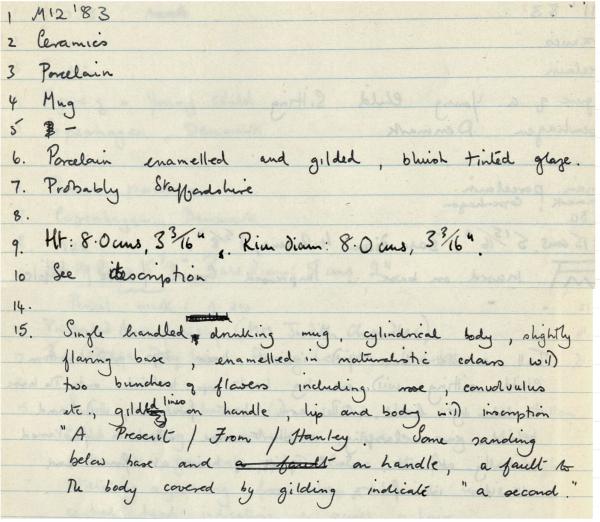 1 M12 '83
2 Ceramics
3 Porcelain
4 Mug
5 -
6. Porcelain enamelled and gilded, bluish tinted glaze.
7. Probably Staffordshire
8.
9. Ht: 8.0 cms, 3 3/16". Rim diam: 8.0 cms, 3 3/16".
10 See description
14.
15. Single handled drinking mug, cylindrical body, slightly
flaring base, enamelled in naturalistic colours with
two bunches of flowers including rose, convolvulus
etc., gilded lines on handle lip and body with inscription
"A Present / From / Hanley. Some sanding
below base and on handle, a fault to
the body covered by gilding indicate "a second."